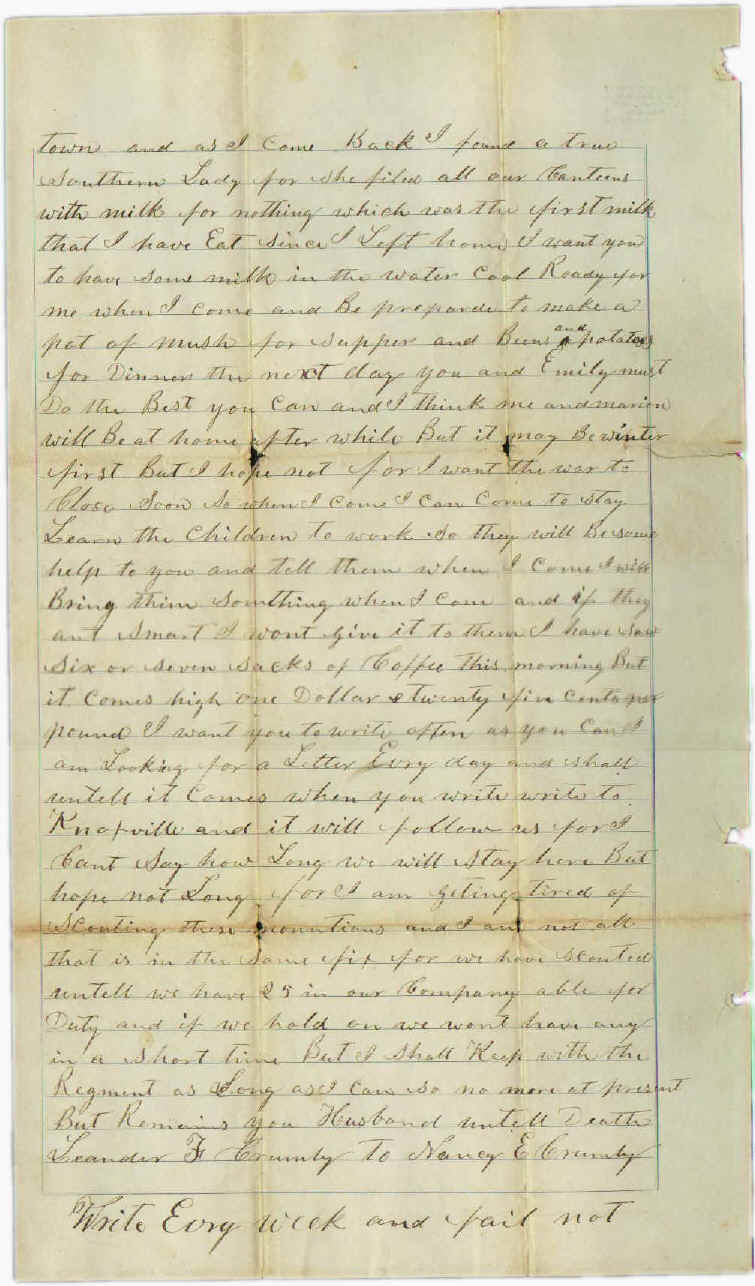 town and as I Come Back I found a true
Southern Lady for she filed all our Canteens
with milk for nothing which was the first milk
that I have Eat since I Left home I want you
to have some milk in the water Cool Ready for
me when I come and Be preparde to make a
pot of mush for supper and Beens and potatoes
for Dinner the next day you and Emily must
Do the Best you Can and I think me and marion
will Be at home after while But it may Be winter
first But I hope not for I want the war to
Close Soon So when I come I can Come to stay
Learn the Children to work so they will Be some
help to you and tell them when I come I will
Bring them Somthing when I com and if they
ant smart I wont give it to them I have saw
six or seven sacks of Coffee this morning But
it Comes high one Dollar & twenty five cents per
pound I want you to write often as you Can I
am Looking for a Letter Evry day and shall
untell it Comes when you write write to
Knoxville and it will follow us for I
Cant Say how Long we will stay here But
hope not Long for I am geting tired of
Scouting these mountions and I am not all
that is in the same fix for we have scouted
untell we have 25 in our Company able for
Duty and if we hold on we wont have any
in a short time But I shall Keep with the
Regment as Long as I can so no more at present
But Remains you Husband untell Death
Leander F Crumly to Nancy E Crumly
Write Evry week and fail not